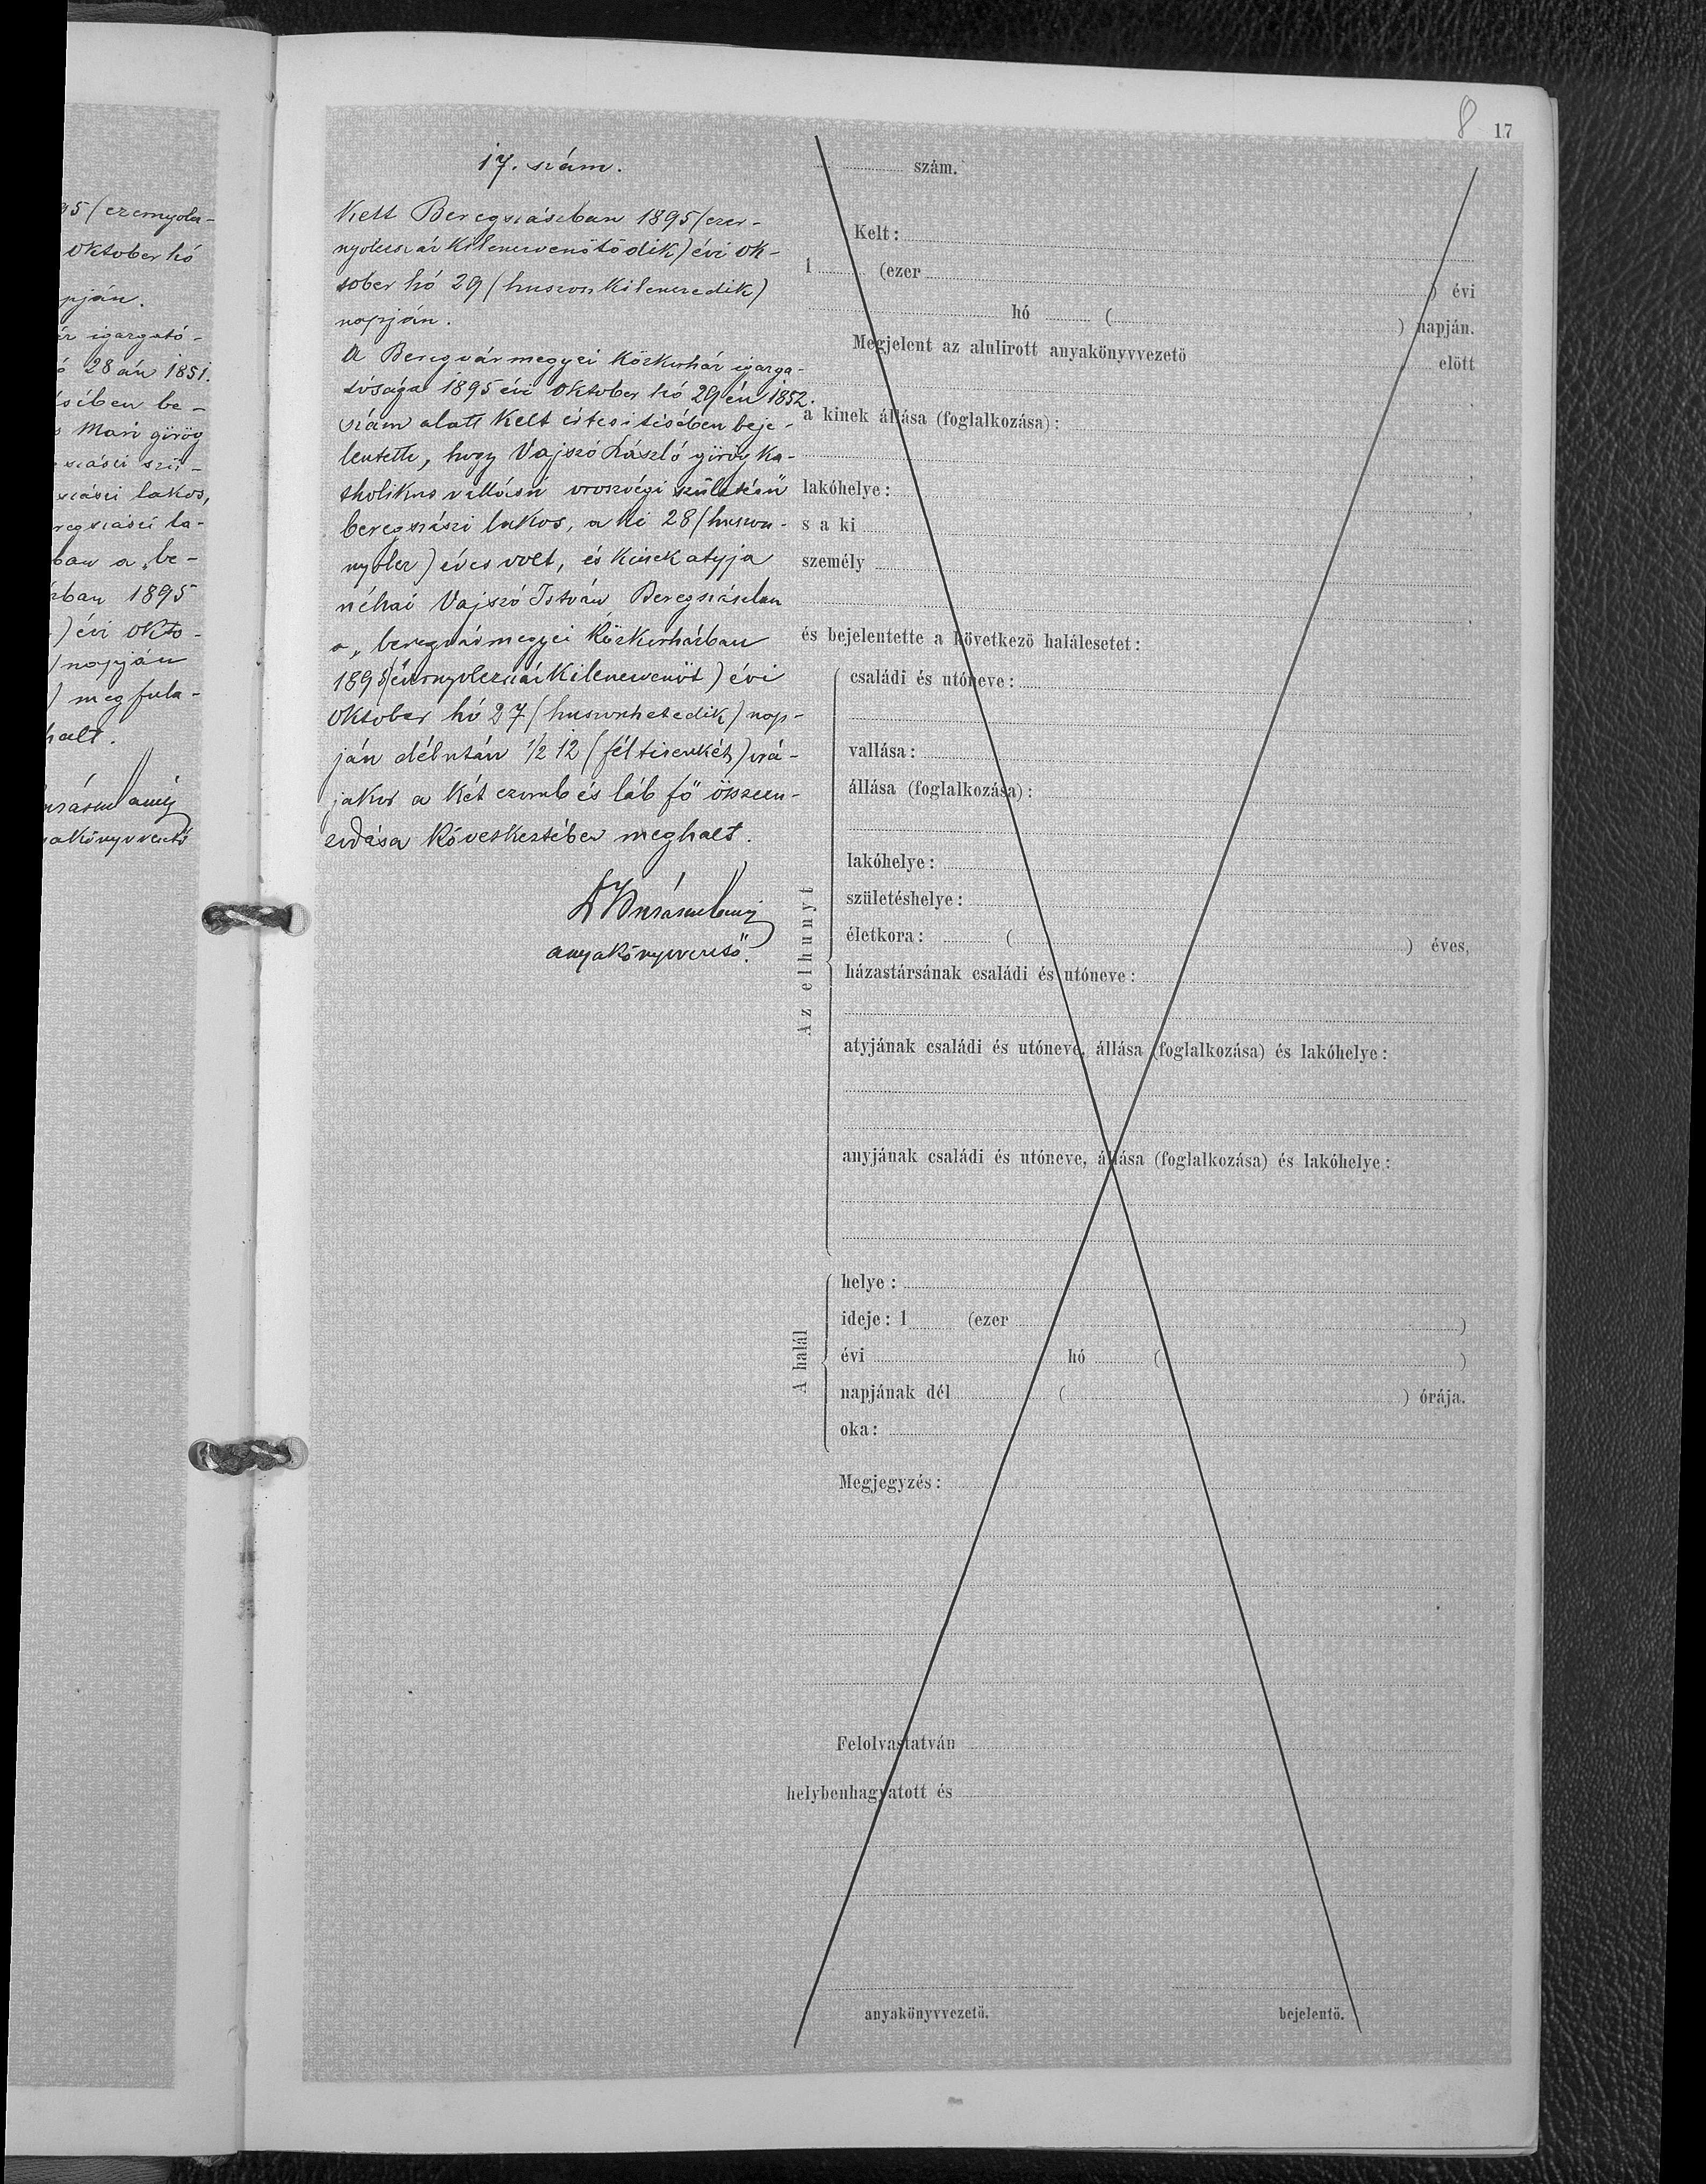 95 (ezernyolcz-
Oktober hó
pján.
ár igazgató-
ó 28 án 1851.
sében be-
Mari görög
szászi szü-
szászi lakos,
regszászi la-
ban a „be-
ban 1895
) évi Okto-
) napján
) megfula-
halt.
8 17
17. szám.
Kelt Beregszászban 1895 (ezer-
nyolczszáz kilenczvenötödik) évi Ok-
tober hó 29 (huszon kilenczedik)
napján.
A Beregvármegyei Közkorház igazga-
tósága 1895 évi Oktober hó 29 én 1852.
szám alatt kelt értesitésében beje-
lentette, hogy Vajszó László görög ka-
tholikus vallású oroszvégi születésü
beregszászi lakos, a ki 28 (huszon-
nyolcz) éves volt, és kinek atyja
néhai Vajszó István Beregszászban
a „beregvármegyei Közkorházban
1895 (ezernyolczszáz kilenczvenöt) évi
Oktober hó 27 (huszonhetedik) nap-
ján délután 1/2 12 (fél tizenkét) órá-
jakor a két czomb és láb fő összezu-
zódása következtében meghalt.
anyakönyvvezető.
szám.
Kelt:
1 (ezer ) évi
hó ( ) napján.
Megjelent az alulirott anyakönyvvezetö elött
a kinek állása (foglalkozása):
lakóhelye:
s a ki
személy
és bejelentette a következö halálesetet:
Az elhunyt
családi és utóneve:
vallása:
állása (foglalkozása):
lakóhelye:
születéshelye:
életkora: ( ) éves,
házastársának családi és utóneve:
atyjának családi és utóneve, állása (foglalkozása) és lakóhelye:
anyjának családi és utóneve, állása (foglalkozása) és lakóhelye:
A halál
helye:
ideje: 1 (ezer )
évi hó ( )
napjának dél ( ) órája.
oka:
Megjegyzés:
Felolvastatván
helybenhagyatott és
anyakönyvvezetö. bejelentö.